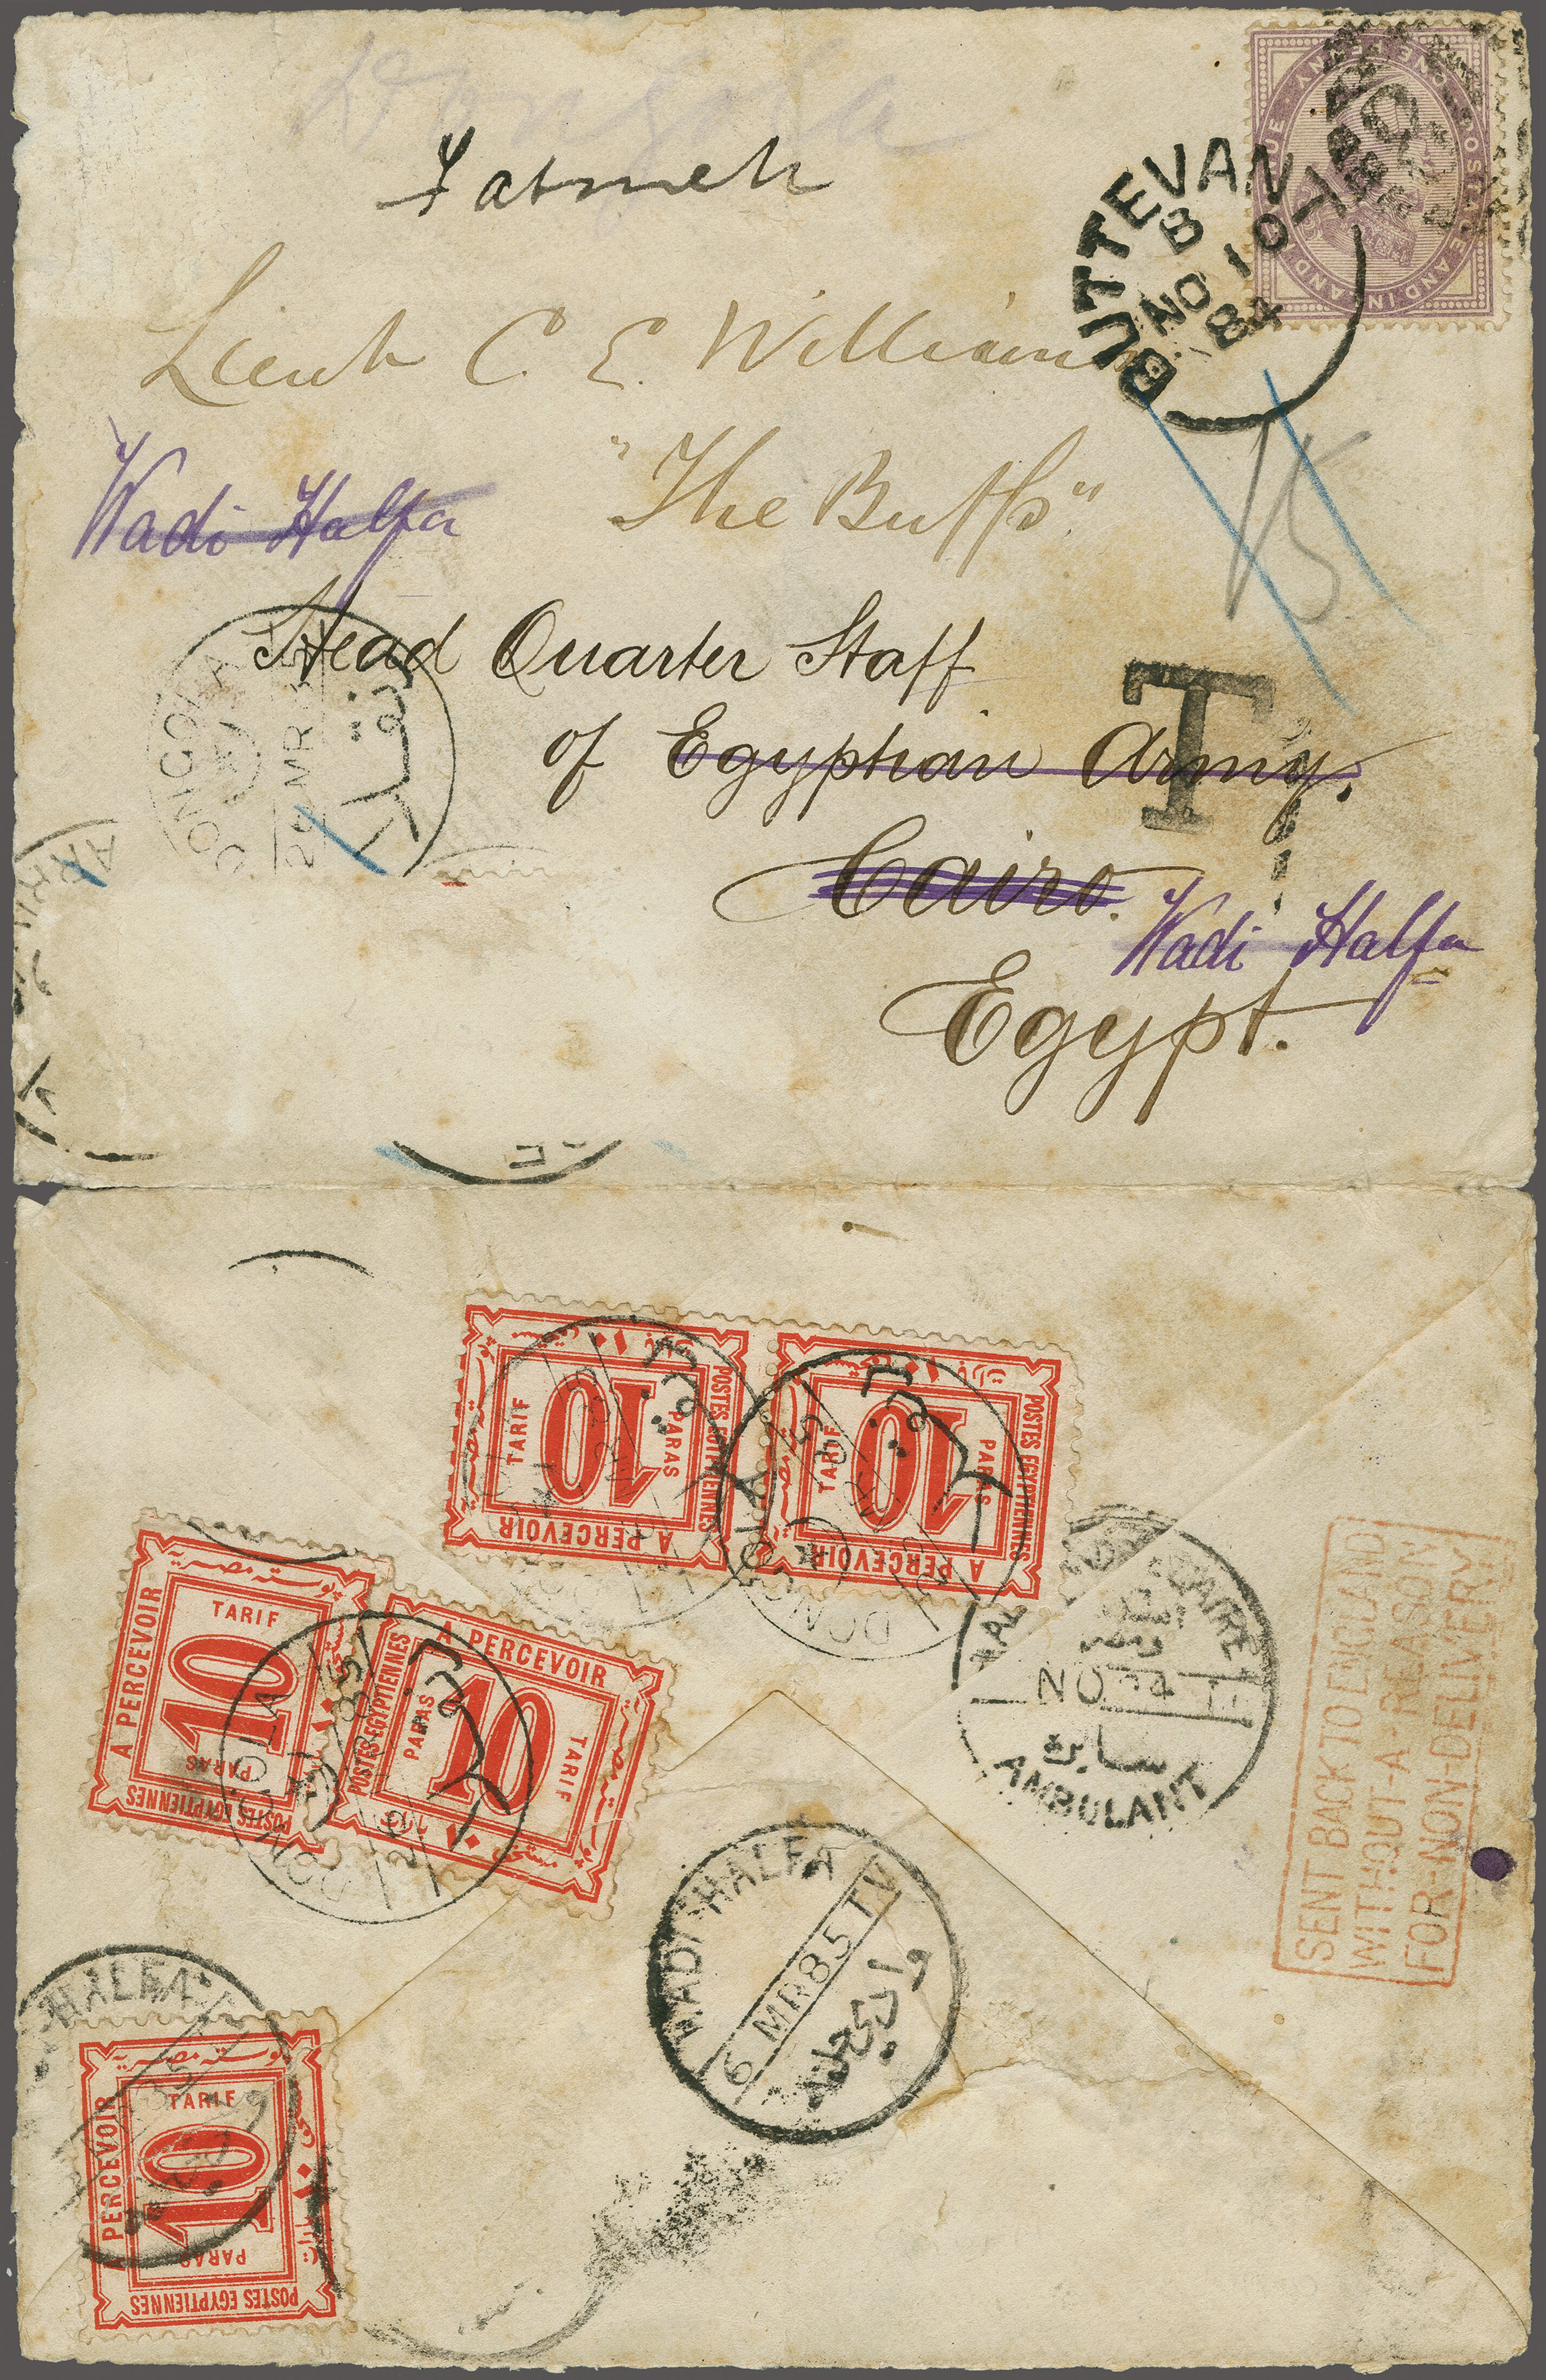 Dongola
Fatmeh
BUTTEVANT
B
NO 10
84
Lieut C. E. Williams
"The Buffs"
Wadi Halfa
15
Head Quarter Staff
of Egyptian Army.
T
Cairo.
Wadi Halfa
Egypt.
DONGOLA
MR
TARIF
10
PARAS
POSTES EGYPTIENNES
A PERCEVOIR
TARIF
10
PARAS
POSTES EGYPTIENNES
A PERCEVOIR
DONGOLA
A PERCEVOIR
TARIF
10
PARAS
POSTES EGYPTIENNES
بوسته مصريه
A PERCEVOIR
POSTES EGYPTIENNES
PARAS
10
TARIF
DONGOLA
85
NO
AMBULANT
SENT BACK TO ENGLAND
WITHOUT-A-REASON
FOR-NON-DELIVERY
WADI-HALFA
6 MR 85 TV
HALFA
بوسته مصريه
A PERCEVOIR
TARIF
10
PARAS
POSTES EGYPTIENNES